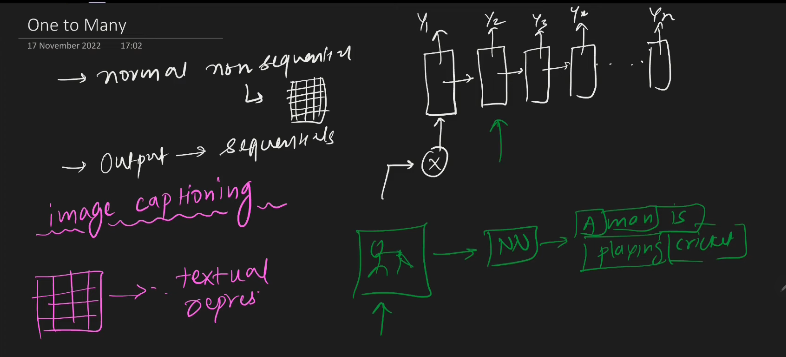 One to Many
17 November 2022 17:02
→ normal non sequential
→ Output → sequentials
image captioning
textual
repres
Y1 Y2 Y3 Y4 Yn
X
NN
A man is
playing cricket